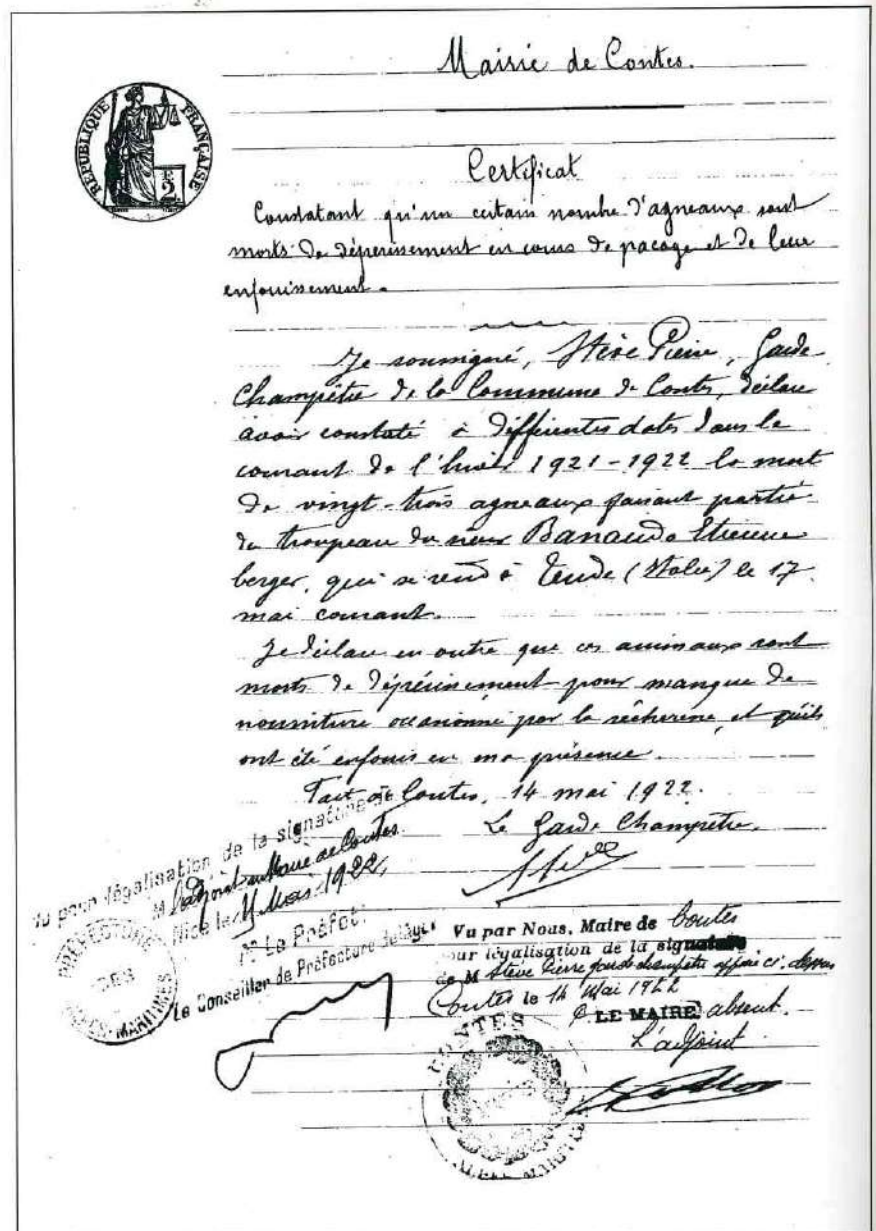 Mairie de Contes.
REPUBLIQUE FRANÇAISE
2
Certificat
Constatant qu'un certain nombre d'agneaux sont
morts de dépérissement en cours de pacage et de leur
enfouissement.
Je soussigné, Steve Pierre, Garde
Champêtre de la Commune de Contes, déclare
avoir constaté à différentes dates dans le
courant de l'hiver 1921-1922 la mort
de vingt-trois agneaux faisant partie
du troupeau du sieur Banaudo Etienne
berger, qui se rend à Tende (Italie) le 17
mai courant.
Je déclare en outre que ces animaux sont
morts de dépérissement pour manque de
nourriture occasionné par la sécheresse, et qu'ils
ont été enfouis en ma présence.
Fait à Contes, 14 mai 1922.
Le Garde Champêtre,
Vu pour légalisation de la signature de
M L'adjoint au Maire de Contes
Nice le Mai 1922,
Le Préfet:
Le Conseiller de Préfecture délégué
PREFECTURE
DES
ALPES-MARITIMES
Vu par Nous, Maire de Contes
pour légalisation de la signature
de M Steve Pierre garde champêtre apposé ci-dessus
Contes le 14 Mai 1922
P. LE MAIRE absent.
L'adjoint
CONTES
ALPES MARITIMES